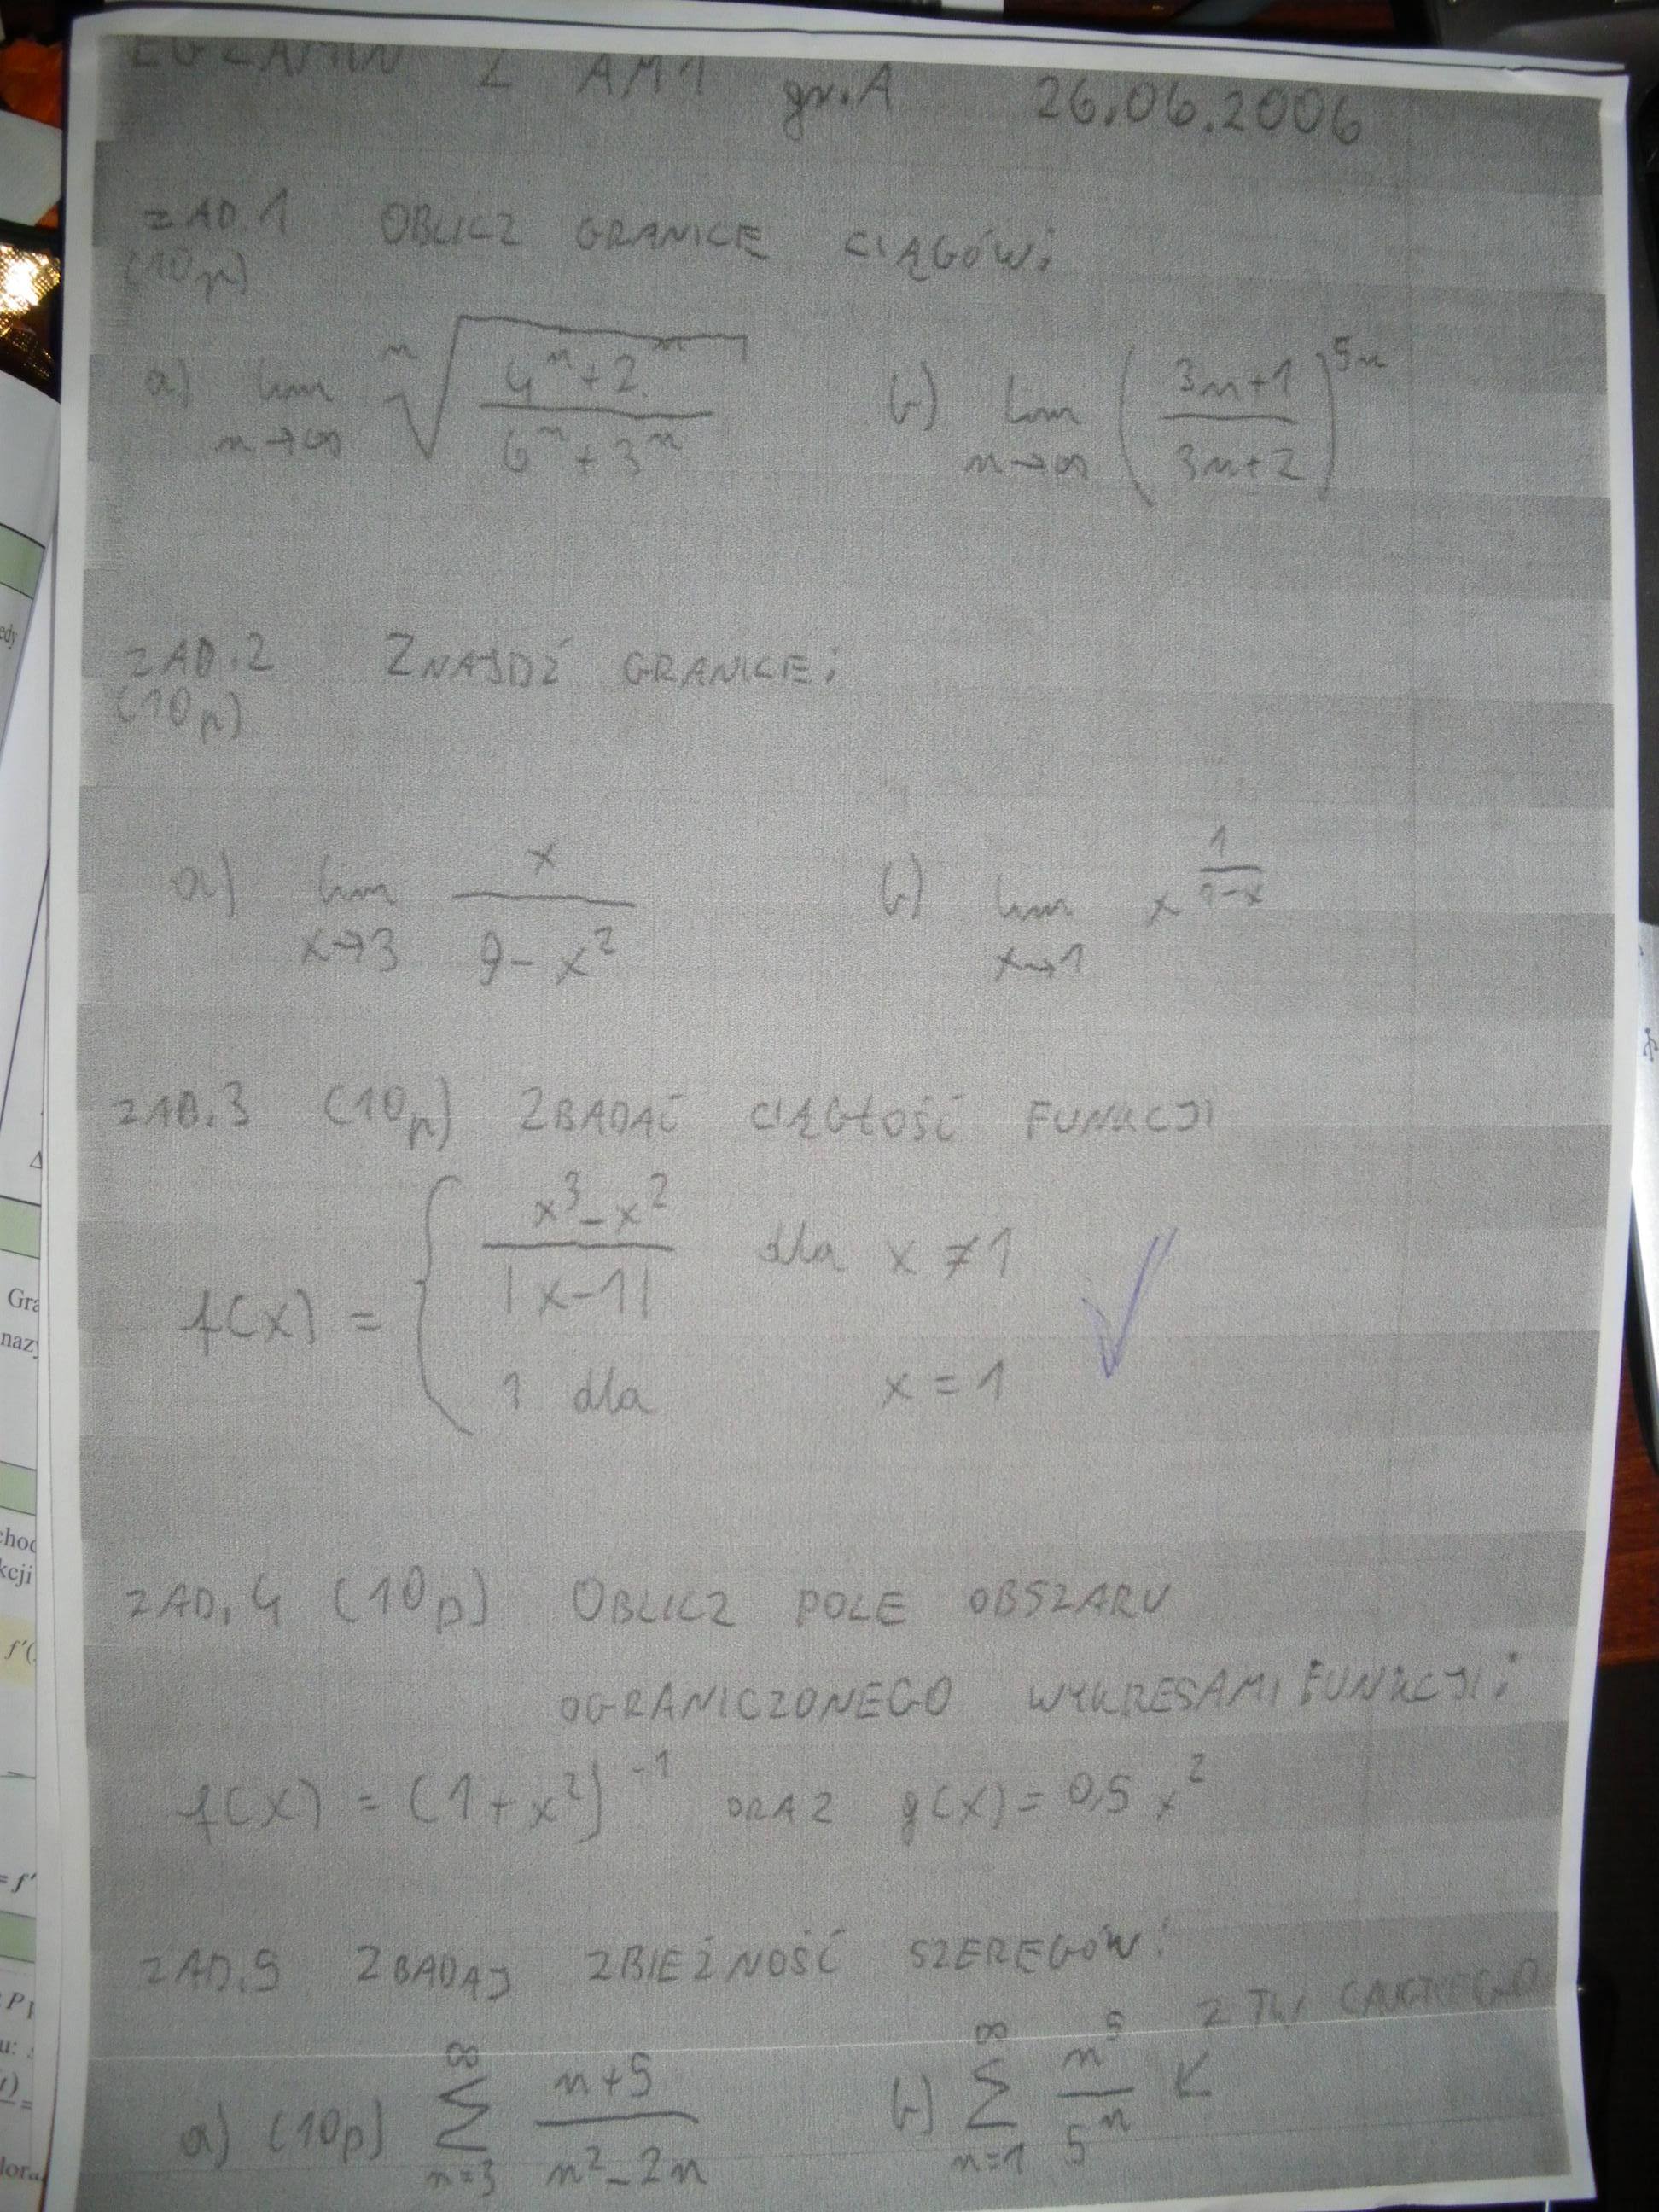 EGZAMIN Z AM1 gr.A 26.06.2006
ZAD.1 OBLICZ GRANICE CIĄGÓW:
(10p)
a) lim n→∞ ⁿ√((4ⁿ+2ⁿ)/(6ⁿ+3ⁿ)) b) lim n→∞ ((3n+1)/(3n+2))^5n
ZAD.2 ZNAJDŹ GRANICE:
(10p)
a) lim x→3 x/(9-x²) b) lim x→1 x^(1/(1-x))
ZAD.3 (10p) ZBADAĆ CIĄGŁOŚĆ FUNKCJI
f(x) = { (x³-x²)/|x-1| dla x ≠ 1
1 dla x = 1
ZAD.4 (10p) OBLICZ POLE OBSZARU
OGRANICZONEGO WYKRESAMI FUNKCJI:
f(x) = (1+x²)⁻¹ ORAZ g(x) = 0,5 x²
ZAD.5 ZBADAJ ZBIEŻNOŚĆ SZEREGÓW:
Z TW. CAUCHEGO
a) (10p) ∑ n=3 ∞ (n+5)/(n²-2n) b) ∑ n=1 ∞ n⁵/5ⁿ ↙
edy
Δ
Gra
nazy
choc
kcji
f'(
= f'
P1
u: